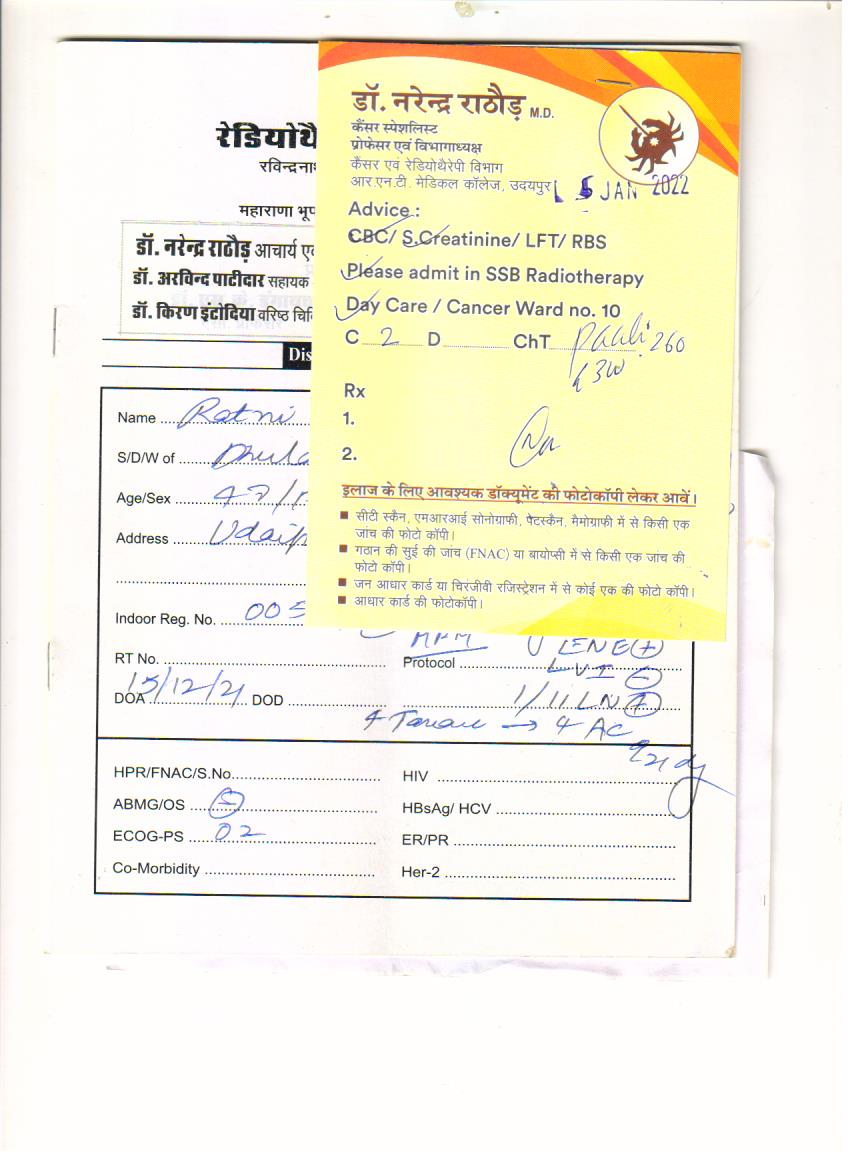 रेडियोथै
रविन्द्रना
महाराणा भूप
डॉ. नरेन्द्र राठौड़ आचार्य एव
डॉ. अरविन्द पाटीदार सहायक
डॉ. किरण इंटोदिया वरिष्ठ चिि
Dis
डॉ. नरेन्द्र राठौड़ M.D.
कैंसर स्पेशलिस्ट
प्रोफेसर एवं विभागाध्यक्ष
कैंसर एवं रेडियोथैरेपी विभाग
आर.एन.टी. मेडिकल कॉलेज, उदयपुर
5 JAN 2022
Advice :
CBC/ S.Creatinine/ LFT/ RBS
Please admit in SSB Radiotherapy
Day Care / Cancer Ward no. 10
C 2 D ChT 260
Rx
1.
2.
इलाज के लिए आवश्यक डॉक्यूमेंट की फोटोकॉपी लेकर आवें।
सीटी स्कैन, एमआरआई सोनोग्राफी, पैटस्कैन, मैमोग्राफी में से किसी एक
जांच की फोटो कॉपी।
गठान की सुई की जांच (FNAC) या बायोप्सी में से किसी एक जांच की
फोटो कॉपी।
जन आधार कार्ड या चिरंजीवी रजिस्ट्रेशन में से कोई एक की फोटो कॉपी।
आधार कार्ड की फोटोकॉपी।
Name Ratni
S/D/W of
Age/Sex 42/
Address Udaip
Indoor Reg. No. 005
RT No. Protocol LVI -
DOA 15/12/21 DOD 1/11 LN +
→ 4 AC
HPR/FNAC/S.No. HIV
ABMG/OS HBsAg/ HCV
ECOG-PS 02 ER/PR
Co-Morbidity Her-2